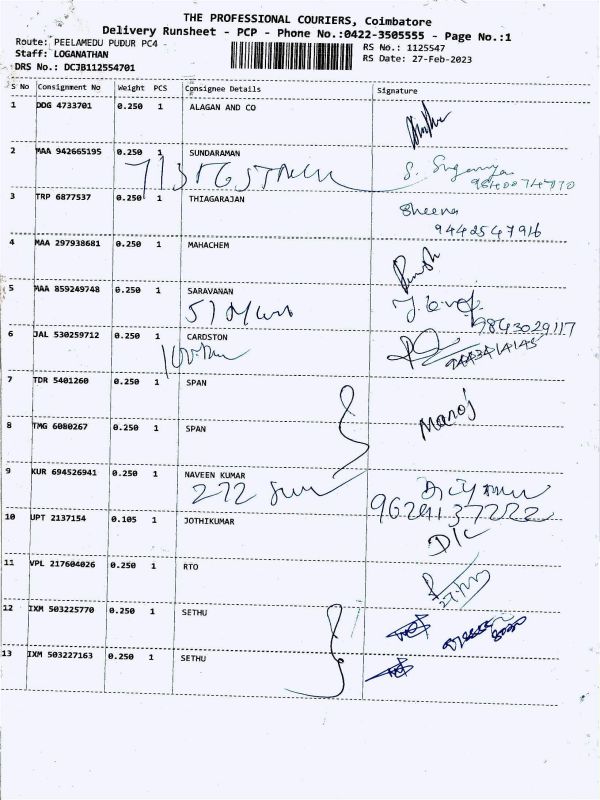 THE PROFESSIONAL COURIERS, Coimbatore
Delivery Runsheet - PCP - Phone No.:0422-3505555 - Page No.:1
Route: PEELAMEDU PUDUR PC4 RS No.: 1125547
Staff: LOGANATHAN RS Date: 27-Feb-2023
DRS No.: DCJB112554701
S No Consignment No Weight PCS Consignee Details Signature
1 DDG 4733701 0.250 1 ALAGAN AND CO
2 MAA 942665195 0.250 1 SUNDARAMAN
3 TRP 6877537 0.250 1 THIAGARAJAN Sheena
9442547916
4 MAA 297938681 0.250 1 MAHACHEM
5 MAA 859249748 0.250 1 SARAVANAN
9843029117
6 JAL 530259712 0.250 1 CARDSTON
9443414145
7 TDR 5401260 0.250 1 SPAN
Manoj
8 TMG 6080267 0.250 1 SPAN
9 KUR 694526941 0.250 1 NAVEEN KUMAR
272
10 UPT 2137154 0.105 1 JOTHIKUMAR D/C
11 VPL 217604026 0.250 1 RTO
12 IXM 503225770 0.250 1 SETHU
13 IXM 503227163 0.250 1 SETHU